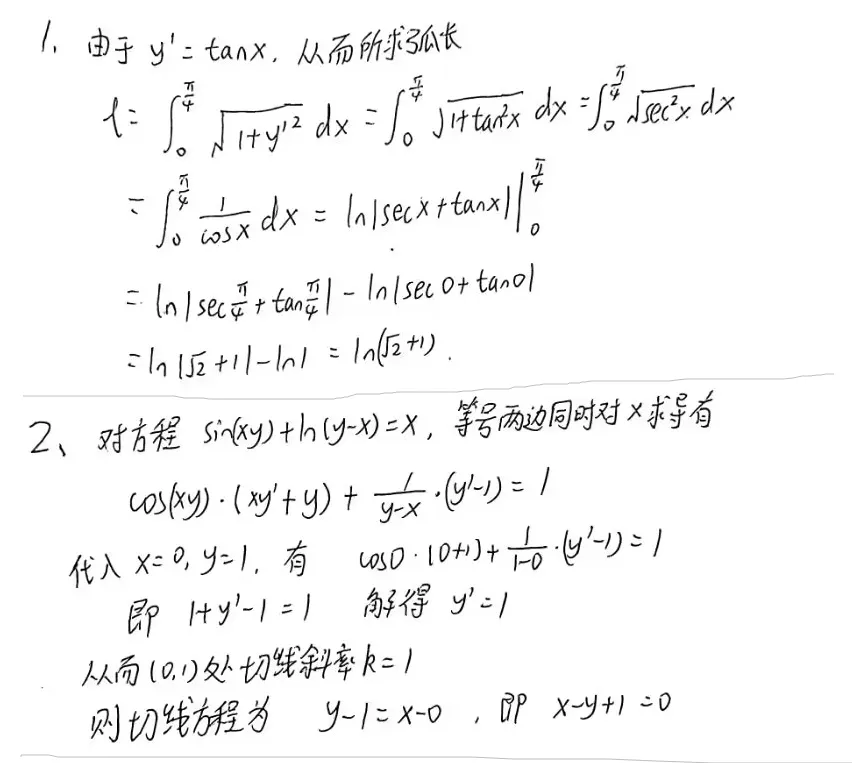 1. 由于 y' = tanx, 从而所求弧长
l = ∫₀^{π/4} √(1+y'²) dx = ∫₀^{π/4} √(1+tan²x) dx = ∫₀^{π/4} √(sec²x) dx
= ∫₀^{π/4} 1/cosx dx = ln|secx+tanx| |₀^{π/4}
= ln|sec π/4 + tan π/4| - ln|sec0+tan0|
= ln|√2+1| - ln1 = ln(√2+1).
2、对方程 sin(xy)+ln(y-x)=x, 等号两边同时对x求导有
cos(xy)·(xy'+y) + 1/(y-x)·(y'-1) = 1
代入 x=0, y=1, 有 cos0·(0+1) + 1/(1-0)·(y'-1) = 1
即 1+y'-1=1 解得 y'=1
从而(0,1)处切线斜率k=1
则切线方程为 y-1=x-0, 即 x-y+1=0